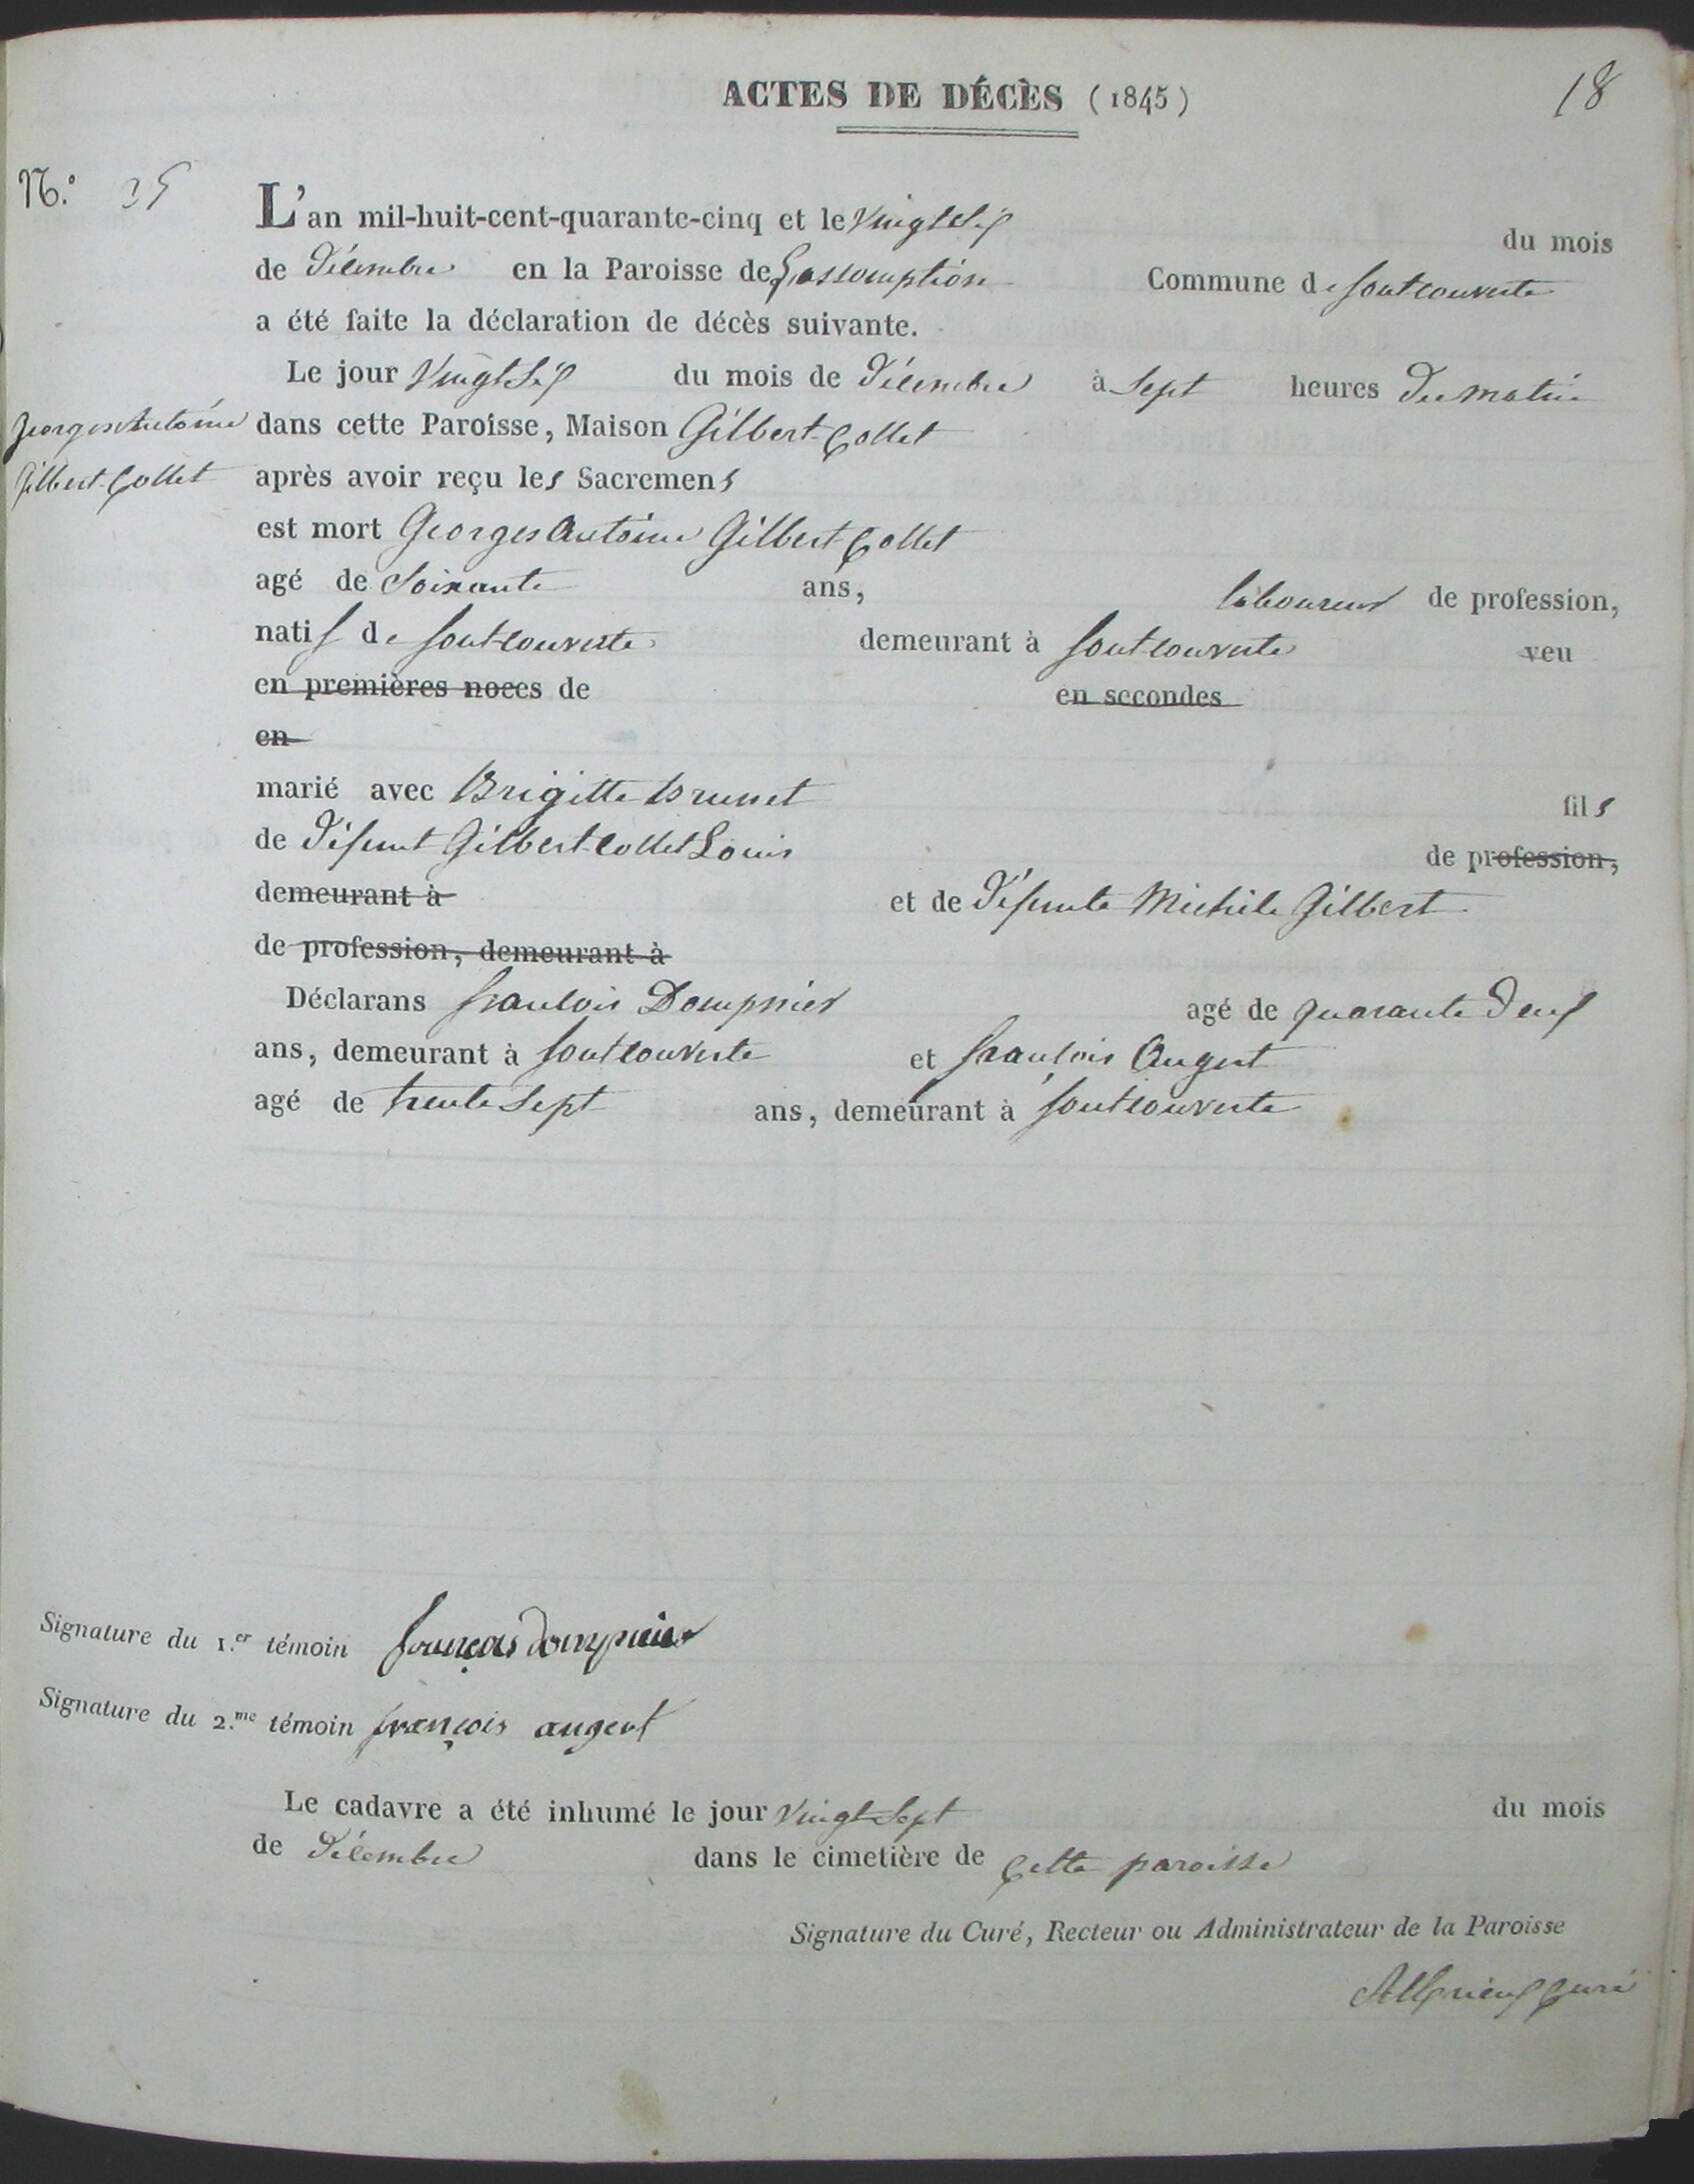 ACTES DE DÉCÈS (1845)
18
N.º 35
L'an mil-huit-cent-quarante-cinq et le Vingt Six du mois
de Décembre en la Paroisse de L'assomption Commune de Fontcouverte
a été faite la déclaration de décès suivante.
Le jour Vingt Six du mois de Décembre à Sept heures Du matin
Georges Antoine
Gilbert-Collet
dans cette Paroisse, Maison Gilbert-Collet
après avoir reçu les Sacremens
est mort Georges Antoine Gilbert-Collet
agé de Soixante ans, laboureur de profession,
natif de fontcouverte demeurant à fontcouverte veu
en premières noces de en secondes
en
marié avec Brigitte Brunet fils
de Défunt Gilbert-Collet Louis de profession,
demeurant à et de Défunte Michele Gilbert
de profession, demeurant à
Déclarans francois Dompnier agé de quarante Deux
ans, demeurant à fontcouverte et francois Augert
agé de trente Sept ans, demeurant à fontcouverte
Signature du 1.er témoin françois dompnier
Signature du 2.me témoin françois augert
Le cadavre a été inhumé le jour Vingt Sept du mois
de Décembre dans le cimetière de Cette paroisse
Signature du Curé, Recteur ou Administrateur de la Paroisse
Curé